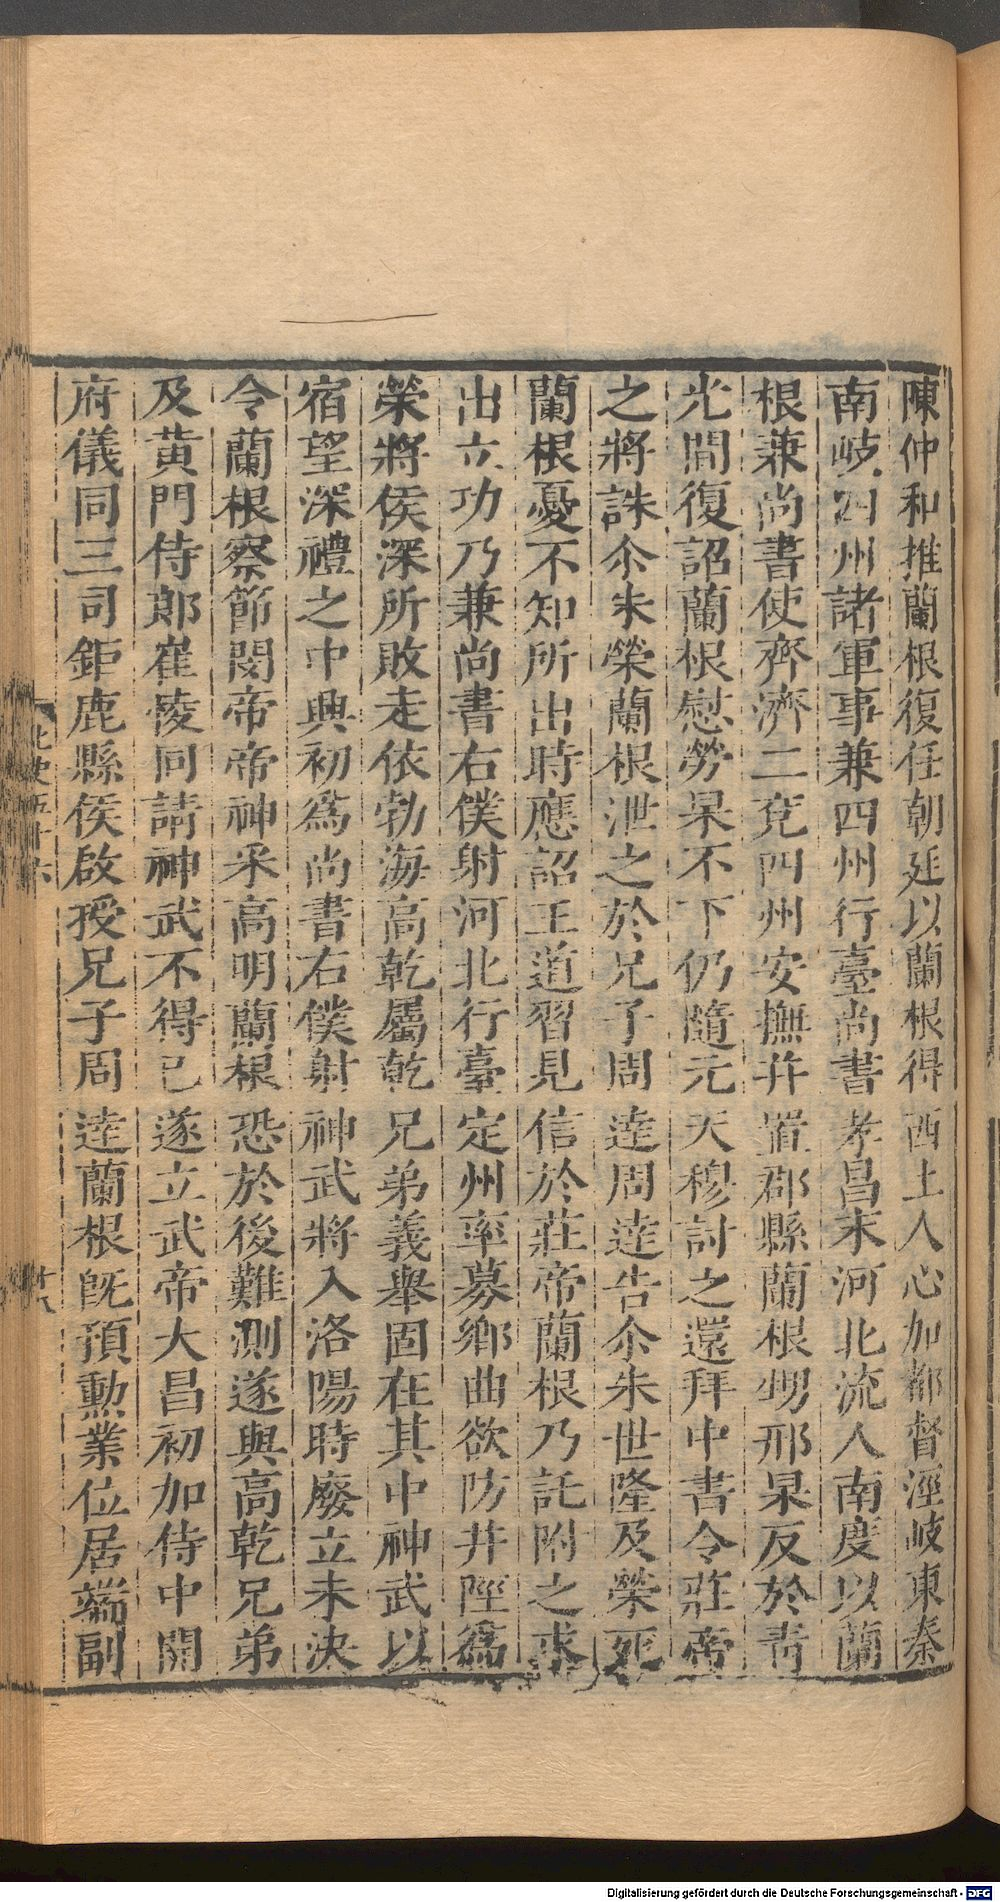 陳仲和推蘭根復任朝廷以蘭根得西土人心加都督涇岐東秦
南岐四州諸軍事兼四州行臺尚書孝昌末河北流人南度以蘭
根兼尚書使齊濟二兗四州安撫并置郡縣蘭根甥邢杲反於青
光間復詔蘭根慰勞杲不下仍隨元天穆討之還拜中書令莊帝
之將誅尒朱榮蘭根泄之於兄子周達周達告尒朱世隆及榮死
蘭根憂不知所出時應詔王道習見信於莊帝蘭根乃託附之求
出立功乃兼尚書右僕射河北行臺定州率募鄉曲欲防井陘爲
榮將侯深所敗走依勃海高乾屬乾兄弟義舉固在其中神武以
宿望深禮之中興初爲尚書右僕射神武將入洛陽時廢立未決
令蘭根察節閔帝帝神采高明蘭根恐於後難測遂與高乾兄弟
及黃門侍郎崔㥄同請神武不得已遂立武帝大昌初加侍中開
府儀同三司鉅鹿縣侯啟授兄子周達蘭根既預勳業位居端副
北史五十六
十八
Digitalisierung gefördert durch die Deutsche Forschungsgemeinschaft - DFG